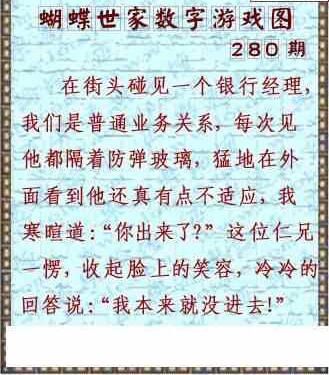 蝴蝶世家数字游戏图
280期
在街头碰见一个银行经理,
我们是普通业务关系, 每次见
他都隔着防弹玻璃, 猛地在外
面看到他还真有点不适应, 我
寒暄道:“你出来了?” 这位仁兄
一愣, 收起脸上的笑容, 冷冷的
回答说:“我本来就没进去!”